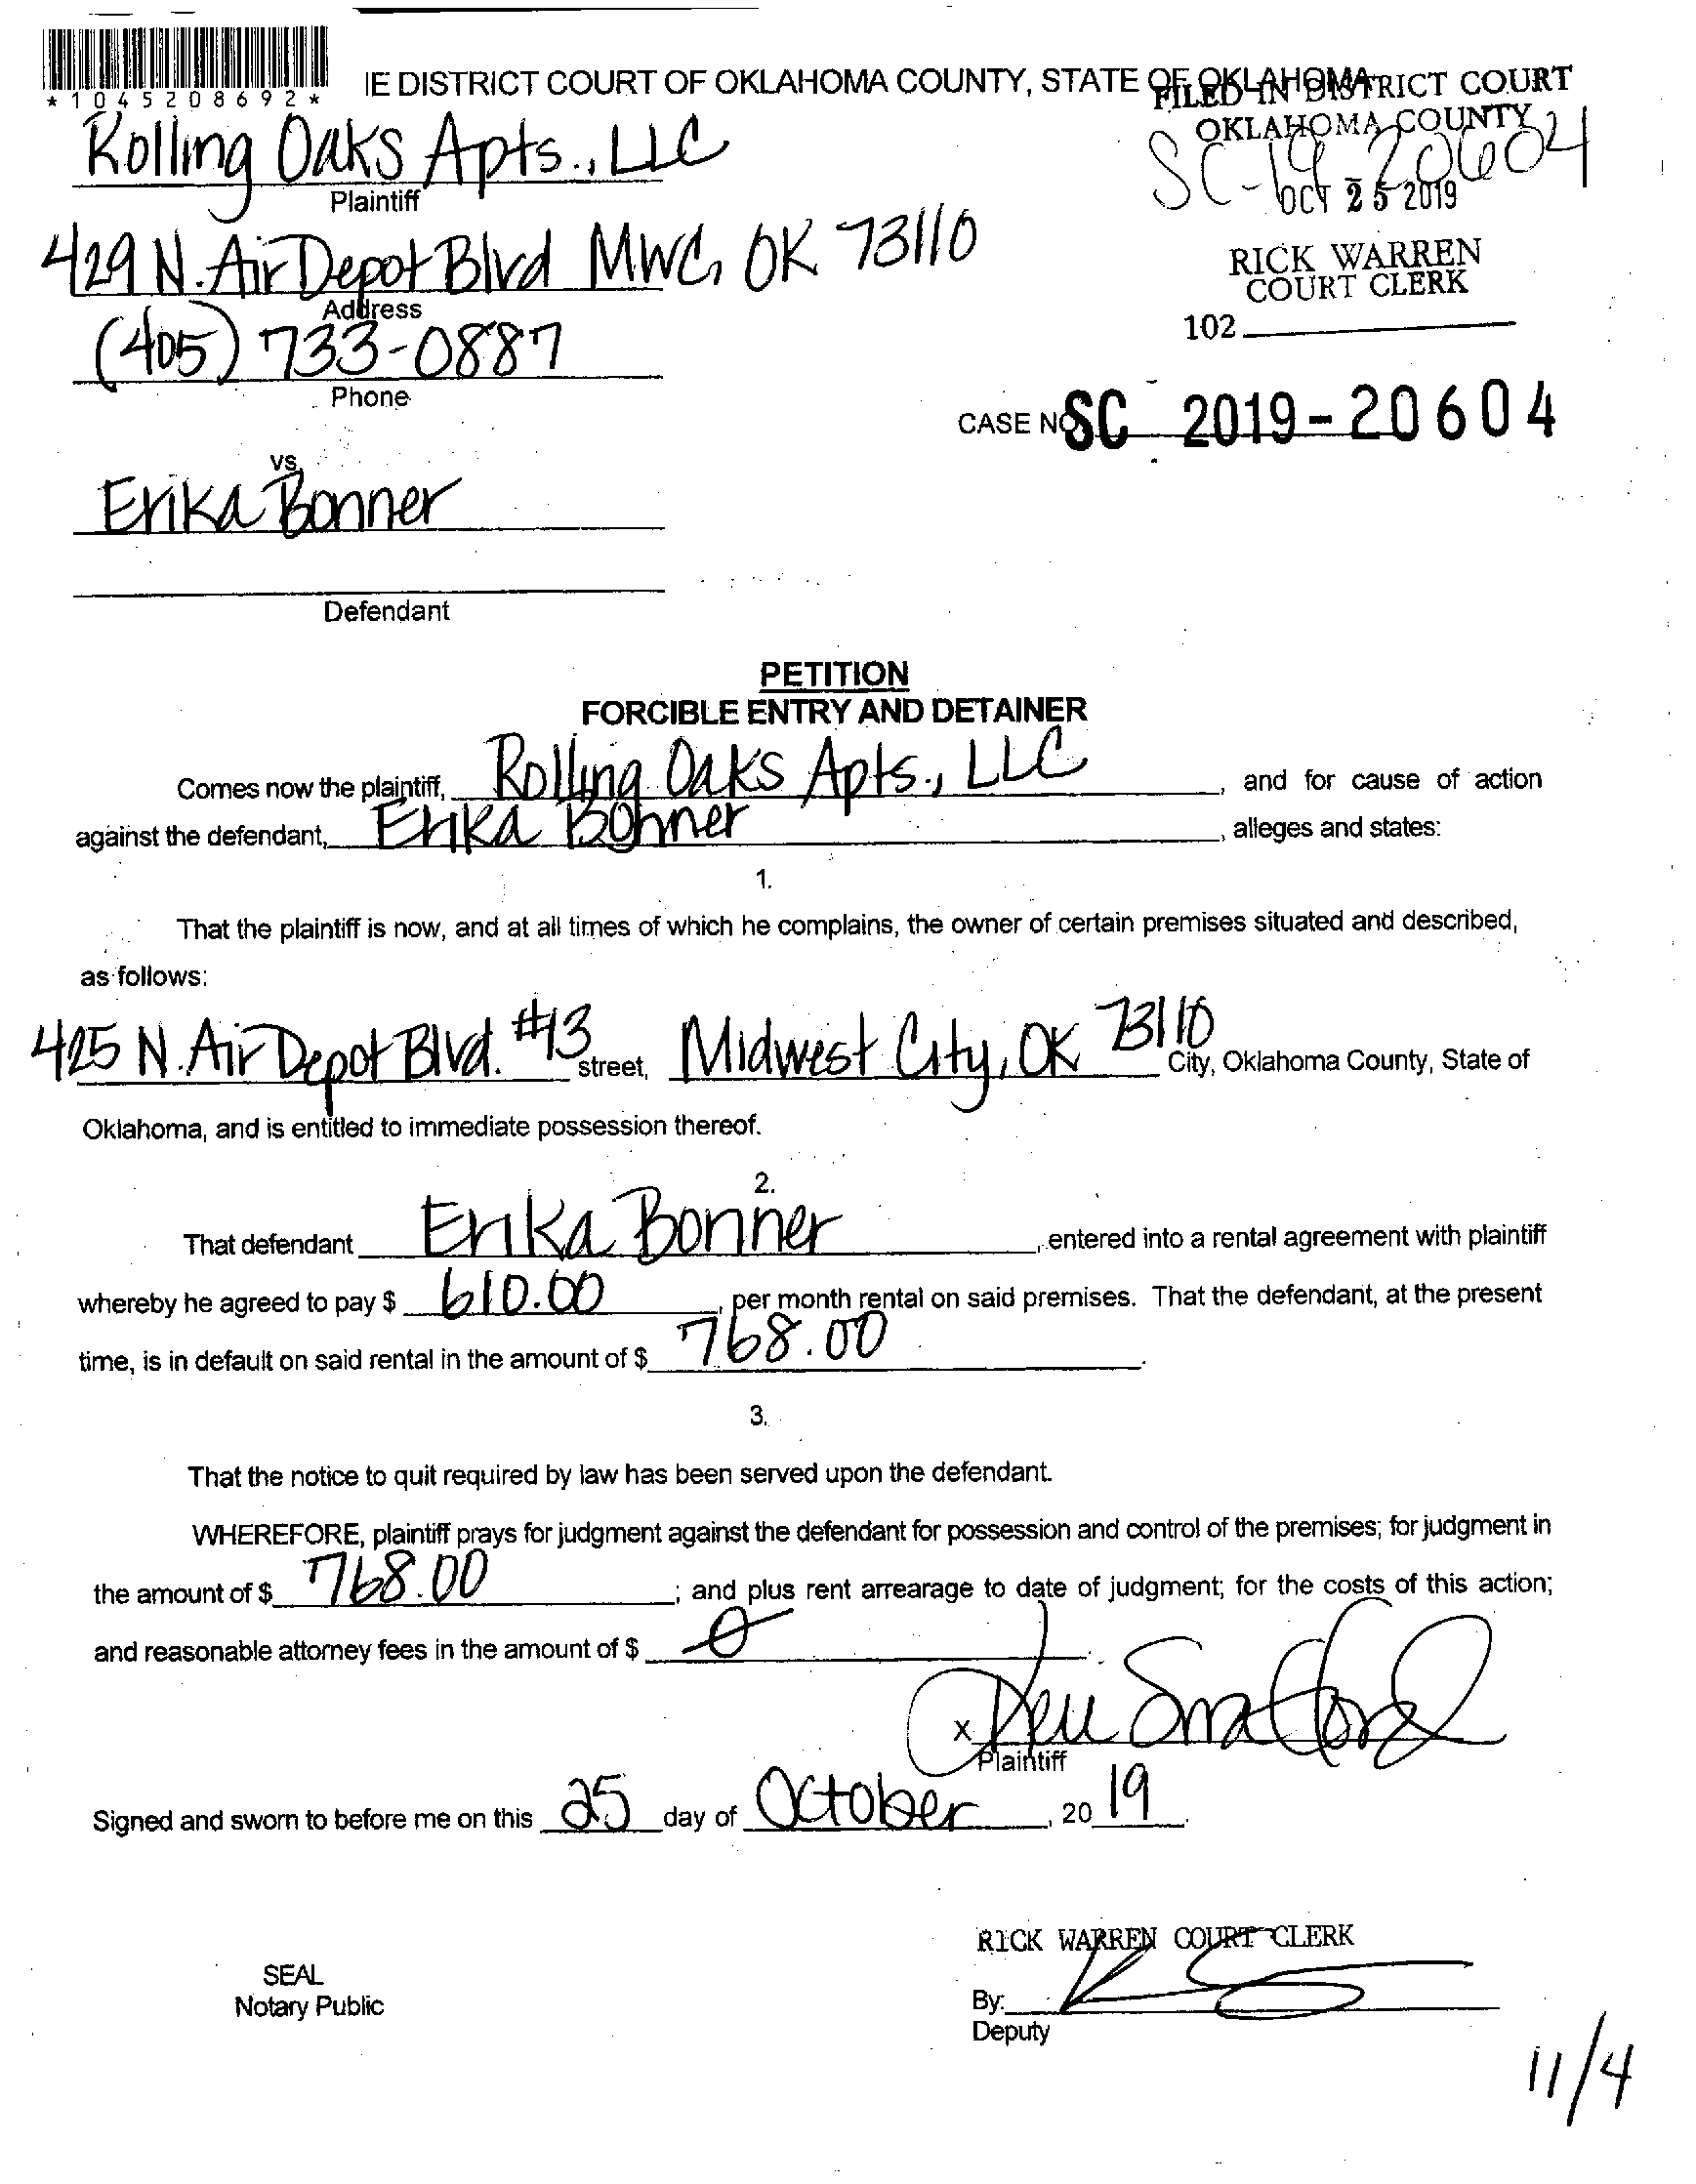 *1045208692*
IE DISTRICT COURT OF OKLAHOMA COUNTY, STATE OF OKLAHOMA
FILED IN DISTRICT COURT
OKLAHOMA COUNTY
Rolling Oaks Apts., LLC
SC-19-20604
Plaintiff
OCT 25 2019
429 N. Air Depot Blvd MWC, OK 73110
RICK WARREN
COURT CLERK
Address
(405) 733-0887
102
Phone
CASE NO. SC 2019-20604
vs.
Erika Bonner
Defendant
PETITION
FORCIBLE ENTRY AND DETAINER
Comes now the plaintiff, Rolling Oaks Apts., LLC, and for cause of action
against the defendant, Erika Bonner, alleges and states:
1.
That the plaintiff is now, and at all times of which he complains, the owner of certain premises situated and described,
as follows:
425 N. Air Depot Blvd. #13 street, Midwest City, OK 73110 City, Oklahoma County, State of
Oklahoma, and is entitled to immediate possession thereof.
2.
That defendant Erika Bonner, entered into a rental agreement with plaintiff
whereby he agreed to pay $ 610.00, per month rental on said premises. That the defendant, at the present
time, is in default on said rental in the amount of $ 768.00.
3.
That the notice to quit required by law has been served upon the defendant.
WHEREFORE, plaintiff prays for judgment against the defendant for possession and control of the premises; for judgment in
the amount of $ 768.00; and plus rent arrearage to date of judgment; for the costs of this action;
and reasonable attorney fees in the amount of $ 0.
X
Plaintiff
Signed and sworn to before me on this 25 day of October, 2019.
RICK WARREN COURT CLERK
SEAL
Notary Public
By:
Deputy
11/4